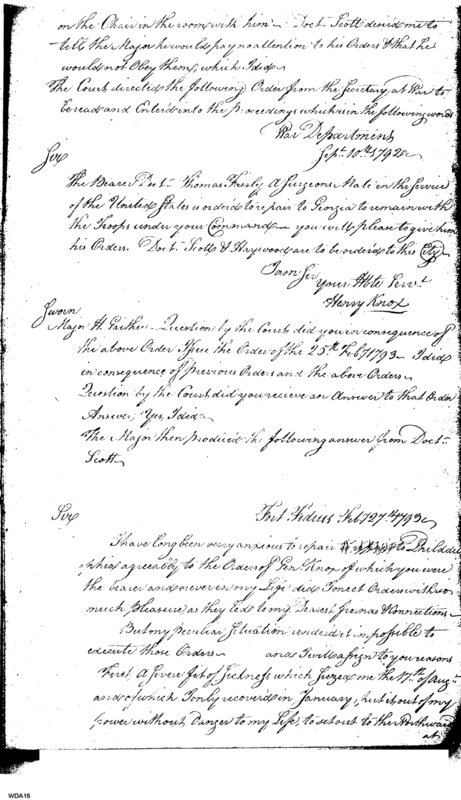 on the Chair in the room with him. Doct. Scott desired me to
tell the Major he would pay no attention to his Orders & that he
would not Obey them, which I did
The Court directed the following Order from the Secretary at War to
be read and Enter'd into the Proceedings which is in the following words
War Department
Sept. 10th 1792
Sir
The Bearer Doct. Thomas a Surgeons Mate in the Service
of the United States is ordered to repair to Georgia to remain with
the Troops under your Command - you will please to give him
his Orders. Doct. Scott & Haywood are to be ordered to this City
I am Sir
Your Obt. Servt.
Henry Knox
Sworn
Major H. Gaither - Question by the Court did you in consequence of
the above Order Issue the Order of the 25th Feby 1793 - I did
in consequence of previous Orders and the above Orders
Question by the Court did you recieve an Answer to that Order
Answer, Yes, I did
The Major then produced the following answer from Doct.
Scott
Fort Fidius Feby 27th 1793
Sir
I have long been very anxious to repair to Philadel
phia agreeably to the Orders of Genl. Knox of which you were
the bearer and never in my Life did I meet Orders with so
much Pleasure as they led to my Dearest friends & Connections
But my Peculiar Situation renders it impossible to
execute those Orders and I will assign to you reasons
First, A Severe fit of Sickness which Siezed me the 17th of Augt.
and of which I only recovered in January, put it out of my
power without Danger to my Life, to set out to the Northward
at
WDA15